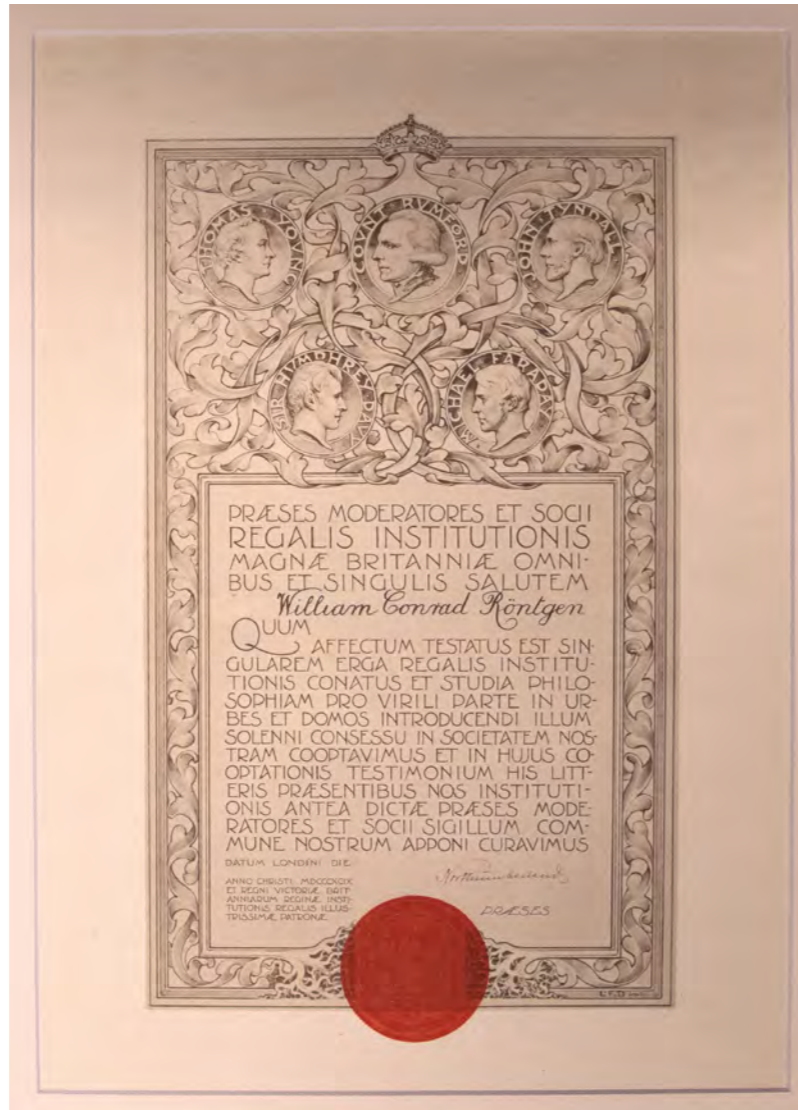 THOMAS YOUNG
COVNT RVMFORD
JOHN TYNDALL
SIR HVMPHREY DAVY
MICHAEL FARADAY
PRÆSES MODERATORES ET SOCII
REGALIS INSTITUTIONIS
MAGNÆ BRITANNIÆ OMNI-
BUS ET SINGULIS SALUTEM
William Conrad Röntgen
QUUM
AFFECTUM TESTATUS EST SIN-
GULAREM ERGA REGALIS INSTITU-
TIONIS CONATUS ET STUDIA PHILO-
SOPHIAM PRO VIRILI PARTE IN UR-
BES ET DOMOS INTRODUCENDI ILLUM
SOLENNI CONSESSU IN SOCIETATEM NOS-
TRAM COOPTAVIMUS ET IN HUJUS CO-
OPTATIONIS TESTIMONIUM HIS LITT-
ERIS PRÆSENTIBUS NOS INSTITUTI-
ONIS ANTEA DICTÆ PRÆSES MODE-
RATORES ET SOCII SIGILLUM COM-
MUNE NOSTRUM APPONI CURAVIMUS
DATUM LONDINI DIE
ANNO CHRISTI MDCCCXCIX
ET REGNI VICTORIÆ BRIT-
ANNIARUM REGINÆ INSTI-
TUTIONIS REGALIS ILLUS-
TRISSIMÆ PATRONÆ
Northumberland
PRÆSES